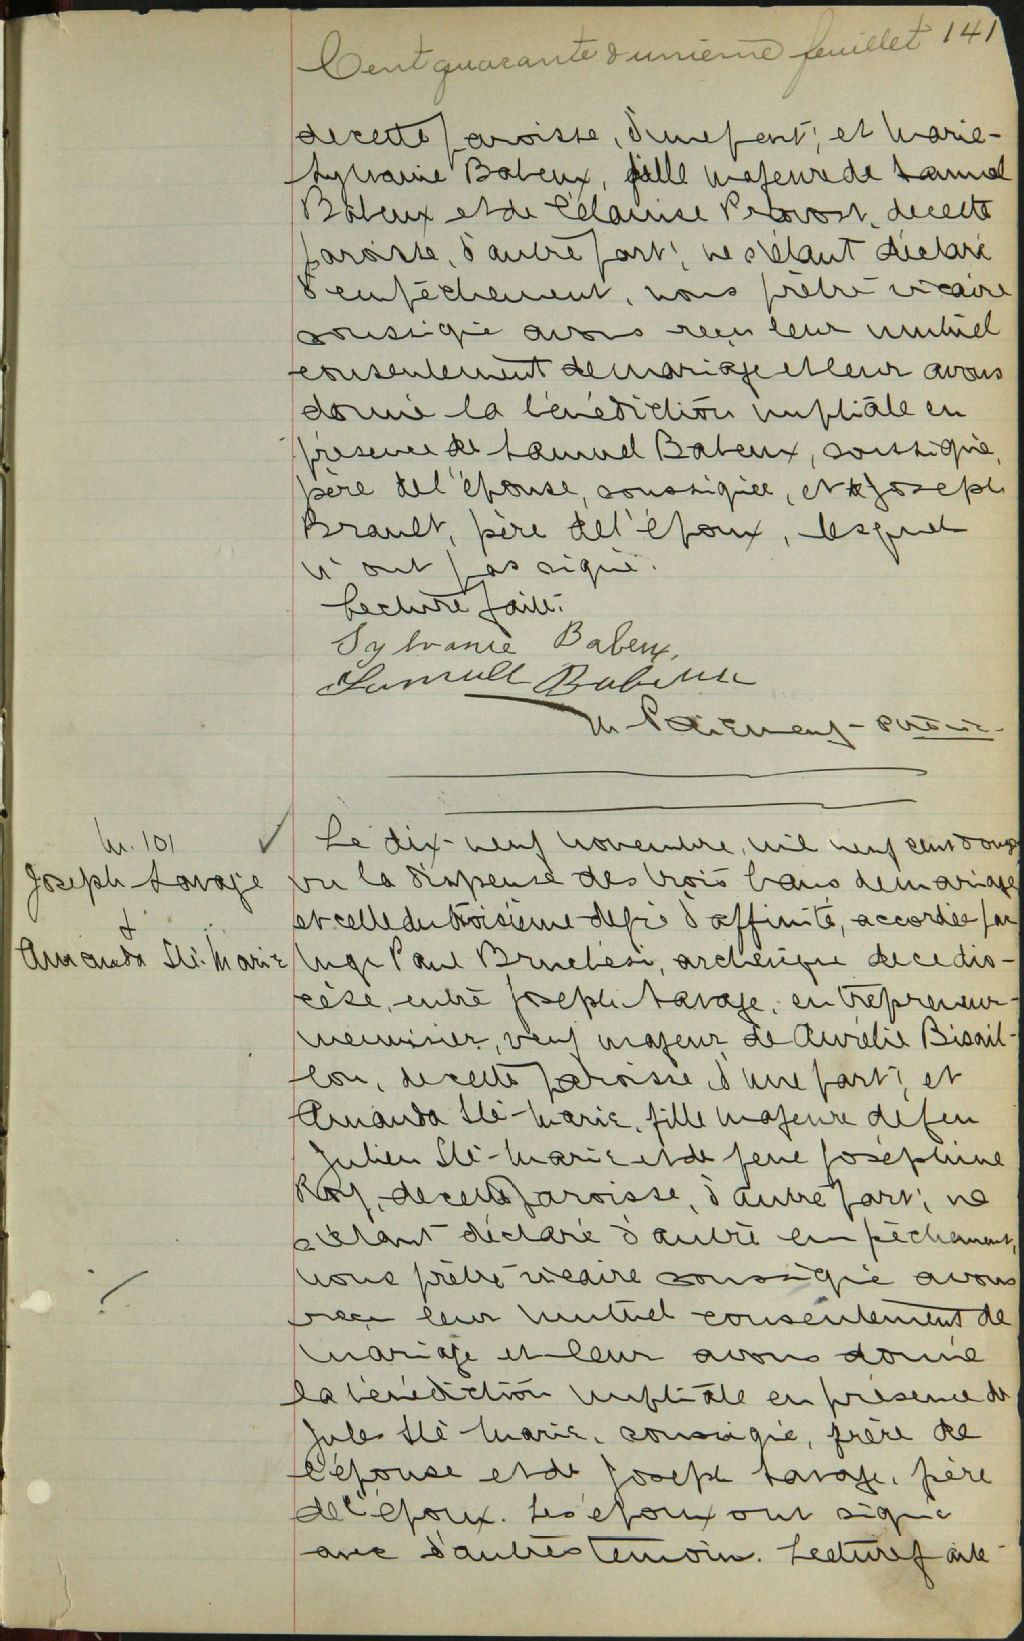 Cent quarante d'unième feuillet 141
de cette paroisse, d'une part; et Marie-
Sylvanie Babeux, fille majeure de Samuel
Babeux et de Provost, de cette
paroisse, d'autre part; ne s'étant déclaré
d'empêchement, nous prêtre vicaire
soussigné avons reçu leur mutuel
consentement de mariage et leur avons
donné la bénédiction nuptiale en
présence de Samuel Babeux, soussigné,
père de l'épouse, soussignée, et de Joseph
Brault, père de l'époux, lesquels
n'ont pas signé.
Lecture faite.
Sylvanie Babeux,
Samuel Babeux
M. 101
Joseph Savage
&
Amanda Ste-Marie
Le dix-neuf novembre, mil neuf cent douze
vu la dispense des trois bans de mariage
et celle du troisième degré d'affinité, accordée par
Mgr Paul Bruchési, archevêque de ce dio-
cèse, entre Joseph Savage, entrepreneur-
menuisier, veuf majeur de Aurélie Bisail-
lon, de cette paroisse, d'une part; et
Amanda Ste-Marie, fille majeure de feu
Julien Ste-Marie et de feue Joséphine
Roy, de cette paroisse, d'autre part; ne
s'étant déclaré d'autre empêchement,
nous prêtre vicaire soussigné avons
reçu leur mutuel consentement de
mariage et leur avons donné
la bénédiction nuptiale en présence de
Jules Ste-Marie, soussigné, frère de
l'épouse et de Joseph Savage, père
de l'époux. Les époux ont signé
avec d'autres témoins. Lecture faite